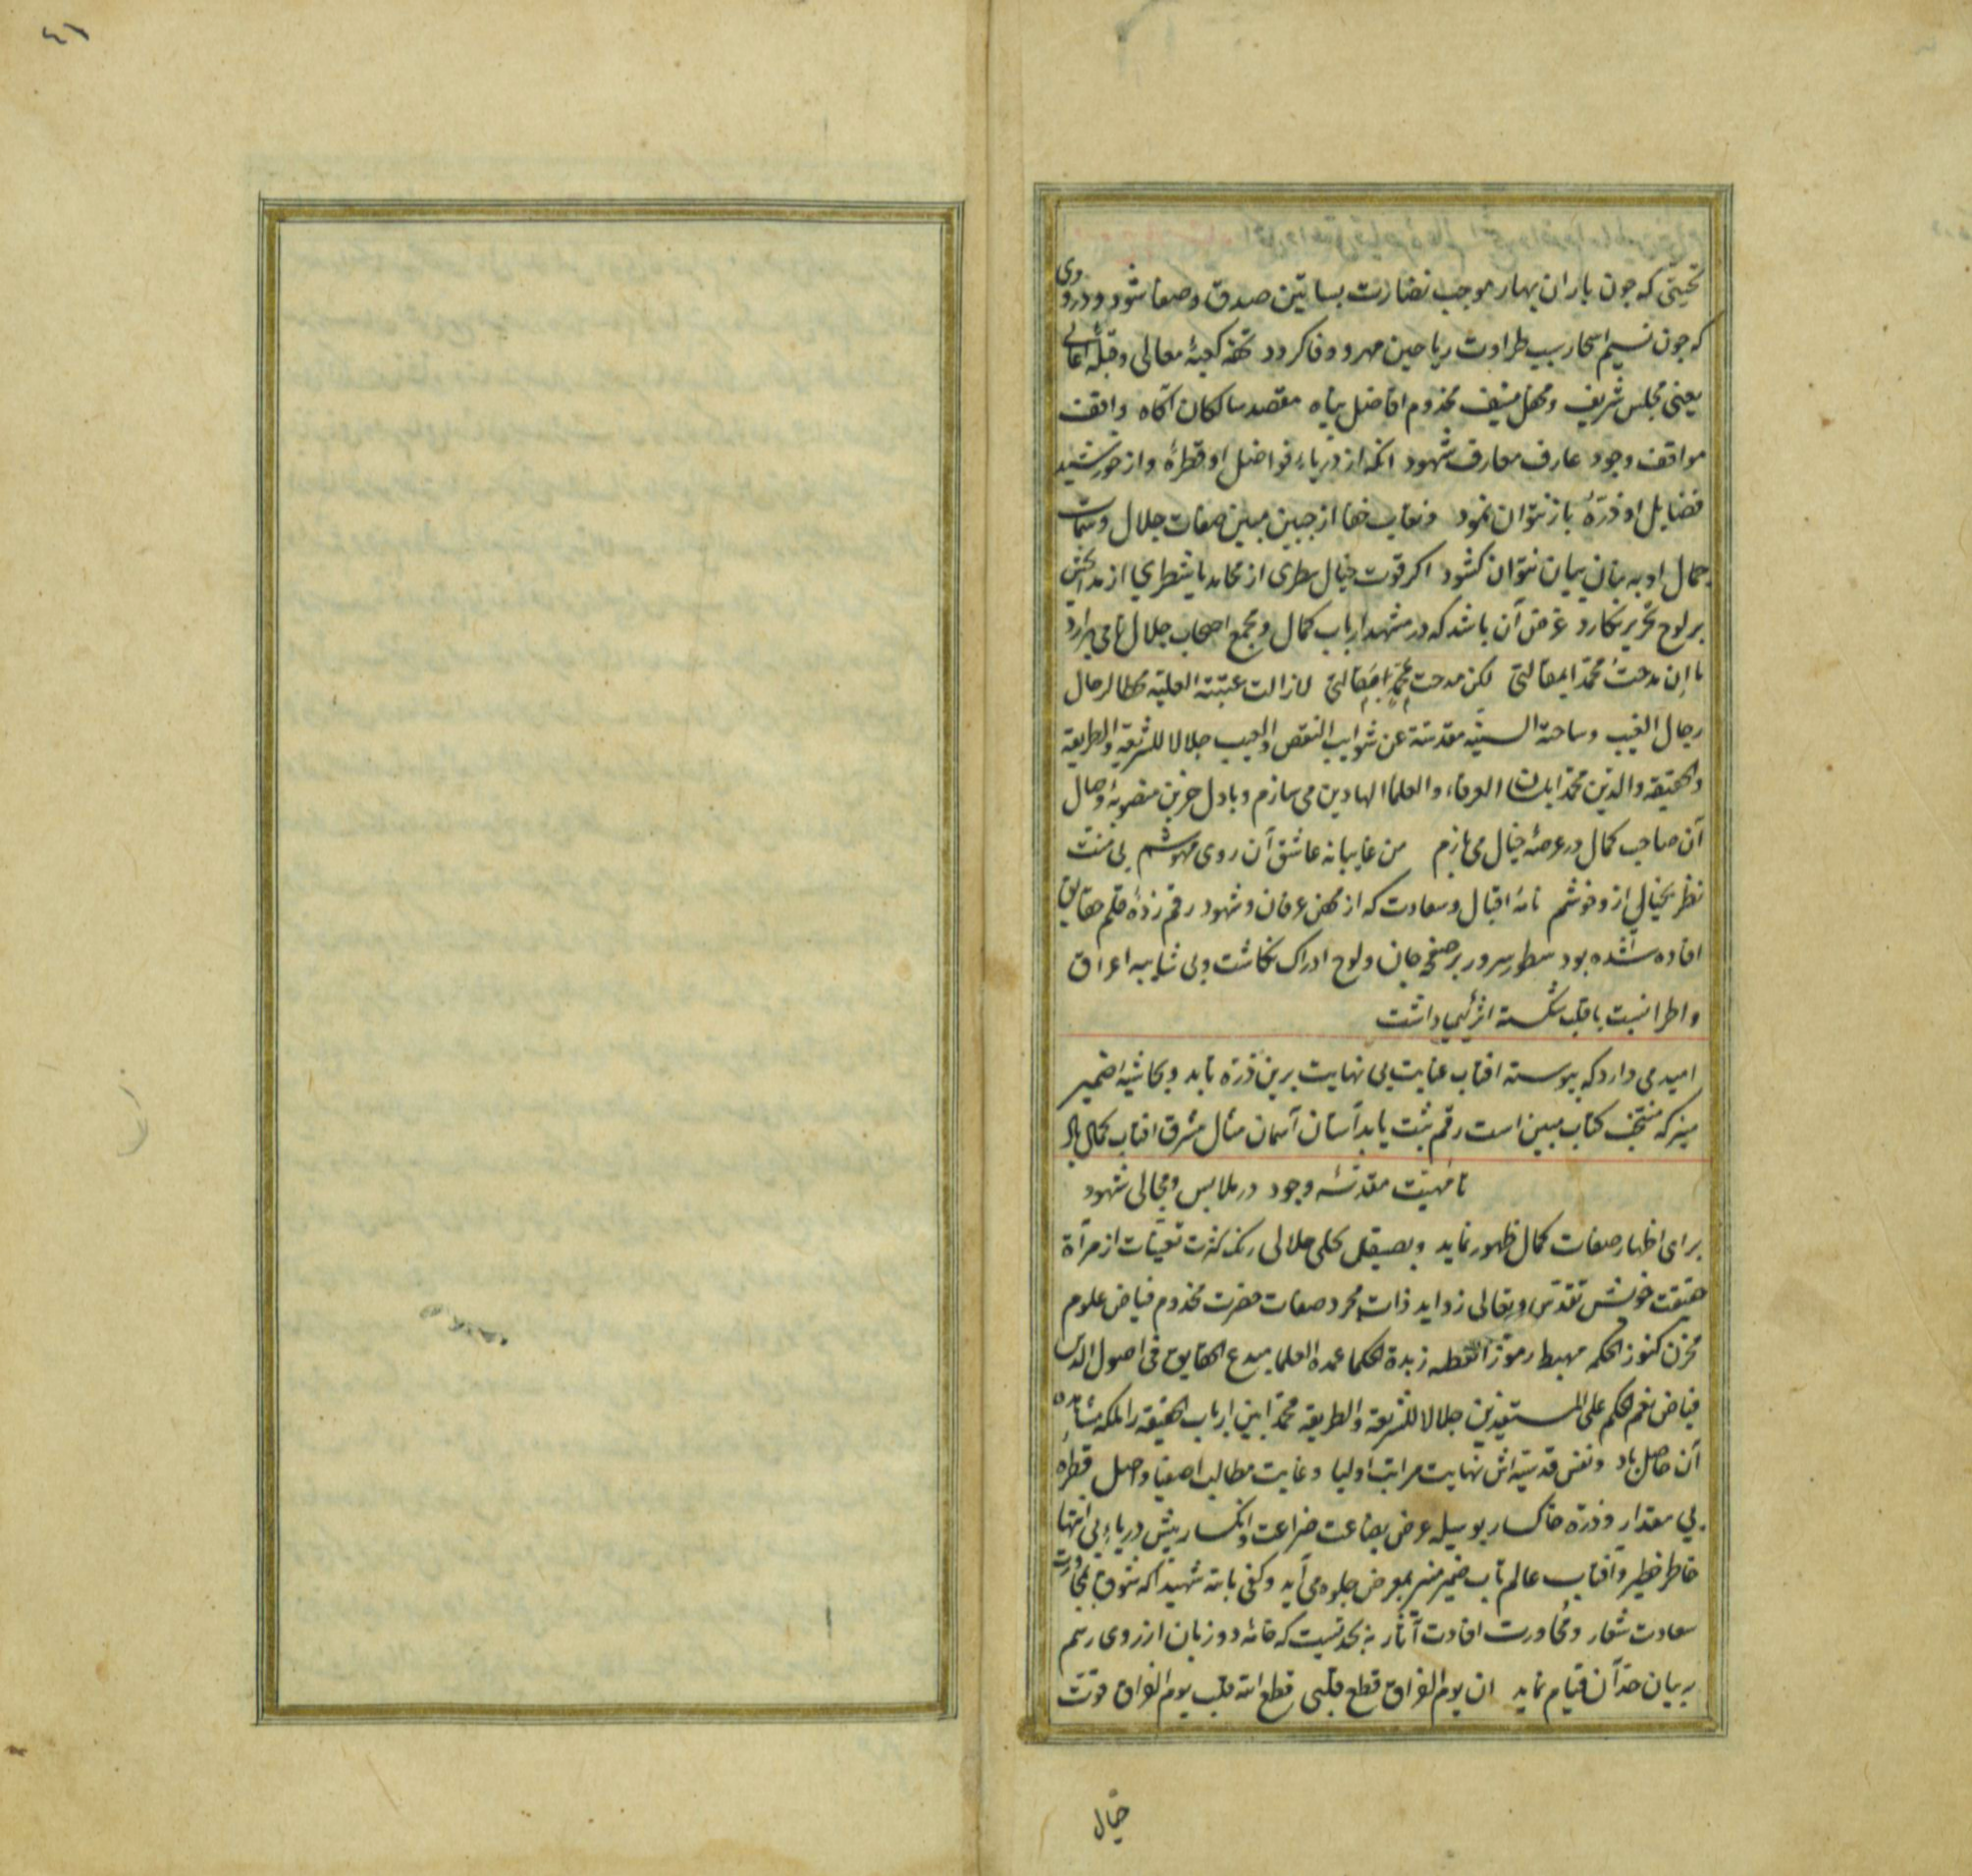 ٤٦
تحیتی که چون باران بهار موجب نضارت بساتین صدق و صفا شود و درودی
که چون نسیم اسحار سبب طراوت ریاحین مهر و وفا کردد تحفه کعبهٔ معالی و قبلهٔ اعالی
یعنی مجلس شریف و محفل منیف مخدوم افاضل پناه مقصد سالکان آکاه واقف
مواقف وجود عارف معارف شهود انکه از دریاء فواضل او قطرهٔ و از خورشید
فضایل او ذرّهٔ باز نتوان نمود و نقاب خفا از جبین مبین صفات جلال و سمات
جمال او به بنان بیان نتوان کشود اکر قوت خیال سطری از محامد یا شطری از مدایحش
بر لوح تحریر نکارد غرض آن باشد که در مشهد ارباب کمال و مجمع اصحاب جلال نامی برارد
ما ان مدحتُ محمّدا بمقالتی لکن مدحت بمحمّد مقالتی لازالت عتبته العلیّه محطا لرحال
رجال الغیب و ساحته السنیّه مقدسة عن شوایب النقص والعیب جلالا للشریعة والطریقة
والحقیقه والدین محمّدا العرفاء والعلما الهادین می سازم و با دل حزین منصوبهٔ وصال
آن صاحب کمال در عرصهٔ خیال می بازم من غایبانه عاشق آن روی مهوشم بی منت
نظر بخیالی ازو خوشم نامهٔ اقبال و سعادت که از عرفان و شهود رقم زدهٔ قلم حقایق
افاده شده بود سطور سرور بر صفحهٔ جان و لوح ادراک نکاشت و بی شایبه اغراق
و اطرا نسبت با قلب شکسته اثر کیمیا داشت
امید می دارد که پیوسته افتاب عنایت بی نهایت برین ذرّه تابد و بحاشیهٔ ضمیر
منیر که منتخب کتاب مبین است رقم ثبت یابد آستان آسمان مثال مشرق افتاب کمال باد
تا مهیّت مقدسهٔ وجود در ملابس و مجالی شهود
برای اظهار صفات کمال ظهور نماید و بصیقل تجلی جلالی زنک کثرت تعیّنات از مرآة
حقیقت خویش تقدّس و تعالی زداید ذات مجرد صفات حضرت مخدوم فیاض علوم
مخزن کنوز الحکم مهبط رموز زبدة الحکما عمده العلما مبدع الحقایق فی اصول الدین
فیاض نعم الحکم علی المستفیدین جلالا للشریعة والطریقه محمّدا بین ارباب الحقیقه را ملکه مشاهده
آن حاصل باد و نفس قدسیّه اش نهایت مراتب اولیا و غایت مطالب اصفیا واصل قطرهٔ
بی مقدار و ذرّه خاکسار بوسیله عرض بضاعت ضراعت و انکسار پیش دریاء بی انتها
خاطر خطیر و آفتاب عالم تاب ضمیر منیر بمعرض جلوه می آید و کفی بالله شهیدا که شوق بمجاورت
سعادت شعار و محاورت افادت آثار نه بحدیست که خامهٔ دو زبان از روی رسم
به بیان حدّ آن قیام نماید ان یوم الفراق قطع قلبی قطع الله قلب یوم الفراق قوّت
خیال